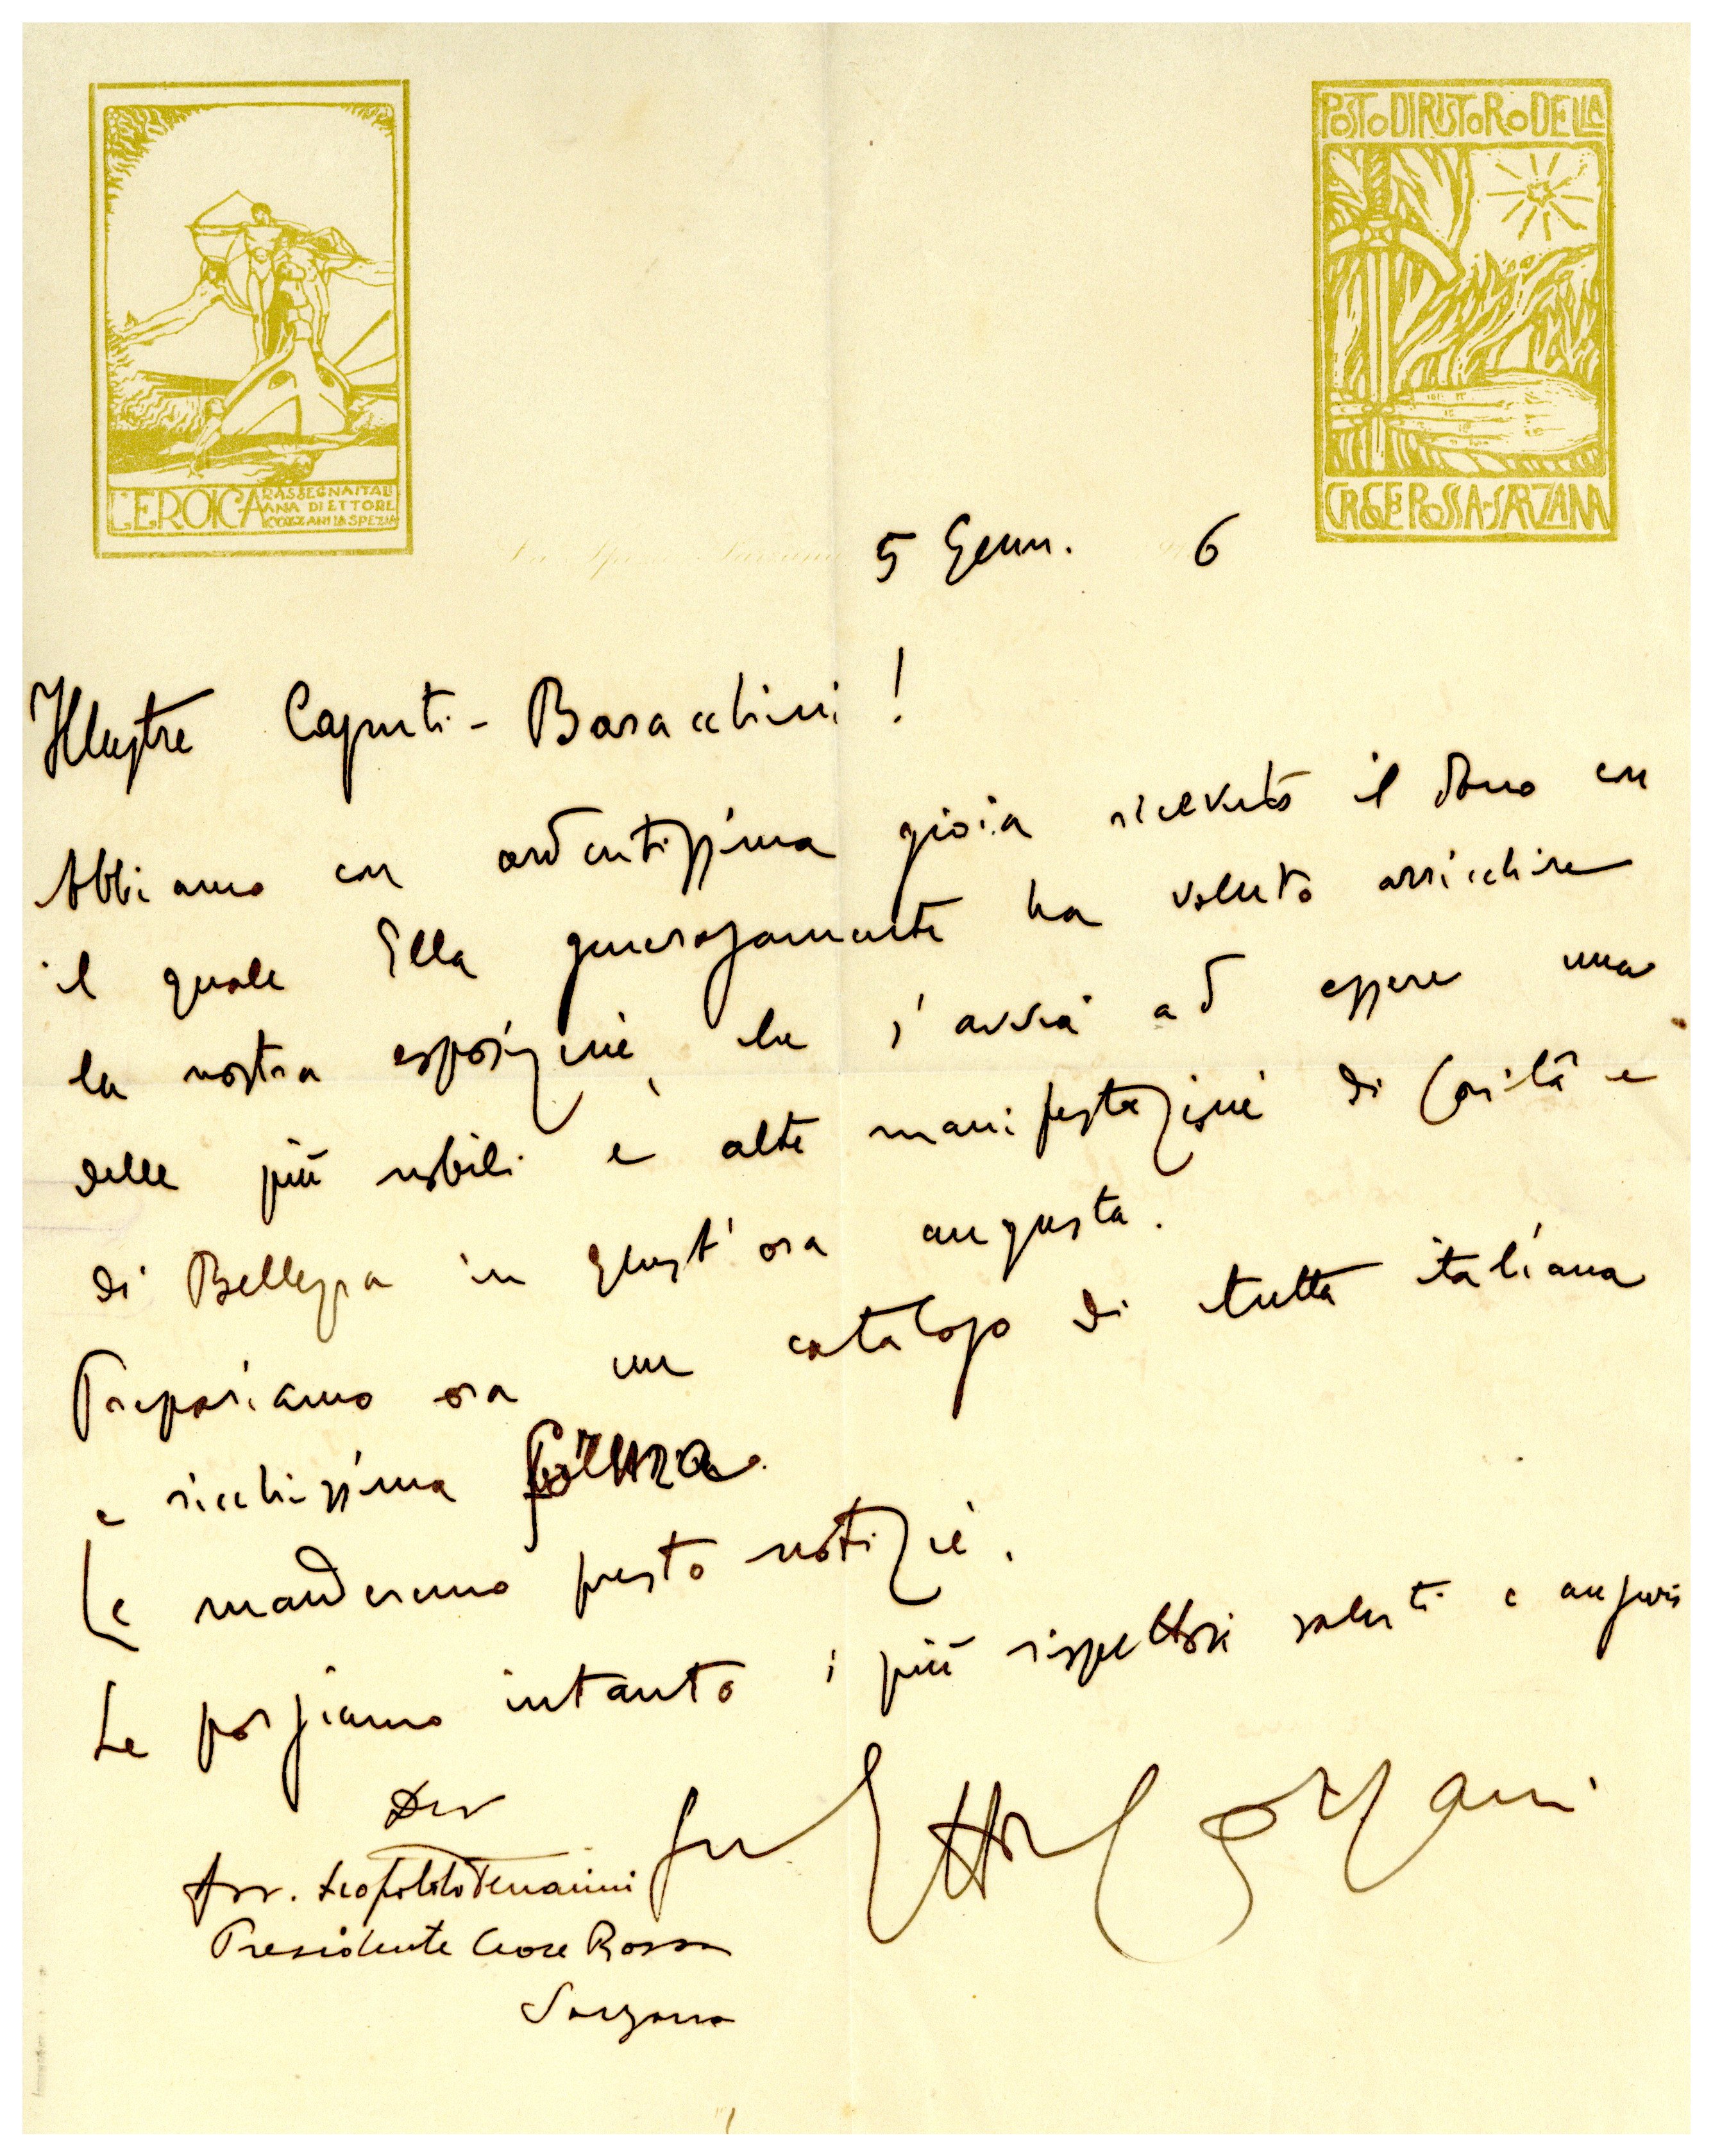 L'EROICA RASSEGNA ITALI
ANA DI ETTORE
COZZANI LA SPEZIA
POSTO DI RISTORO DELLA
CROCE ROSSA-SARZANA
La Spezia - Sarzana 5 Genn. 6
Illustre Caputi-Baracchini!
Abbiamo con ardentissima gioia ricevuto il dono con
il quale Ella generosamente ha voluto arricchire
la nostra esposizione, che s'avvia ad essere una
delle più nobili e alte manifestazioni di Carità e
di Bellezza in quest'ora angusta.
Prepariamo ora un catalogo di tutta italiana
e ricchissima
Le manderemo presto notizie.
Le porgiamo intanto i più rispettosi saluti e auguri
Dev
Avv. Leopoldo
Ettore Cozzani
Presidente Croce Rossa
Sarzana